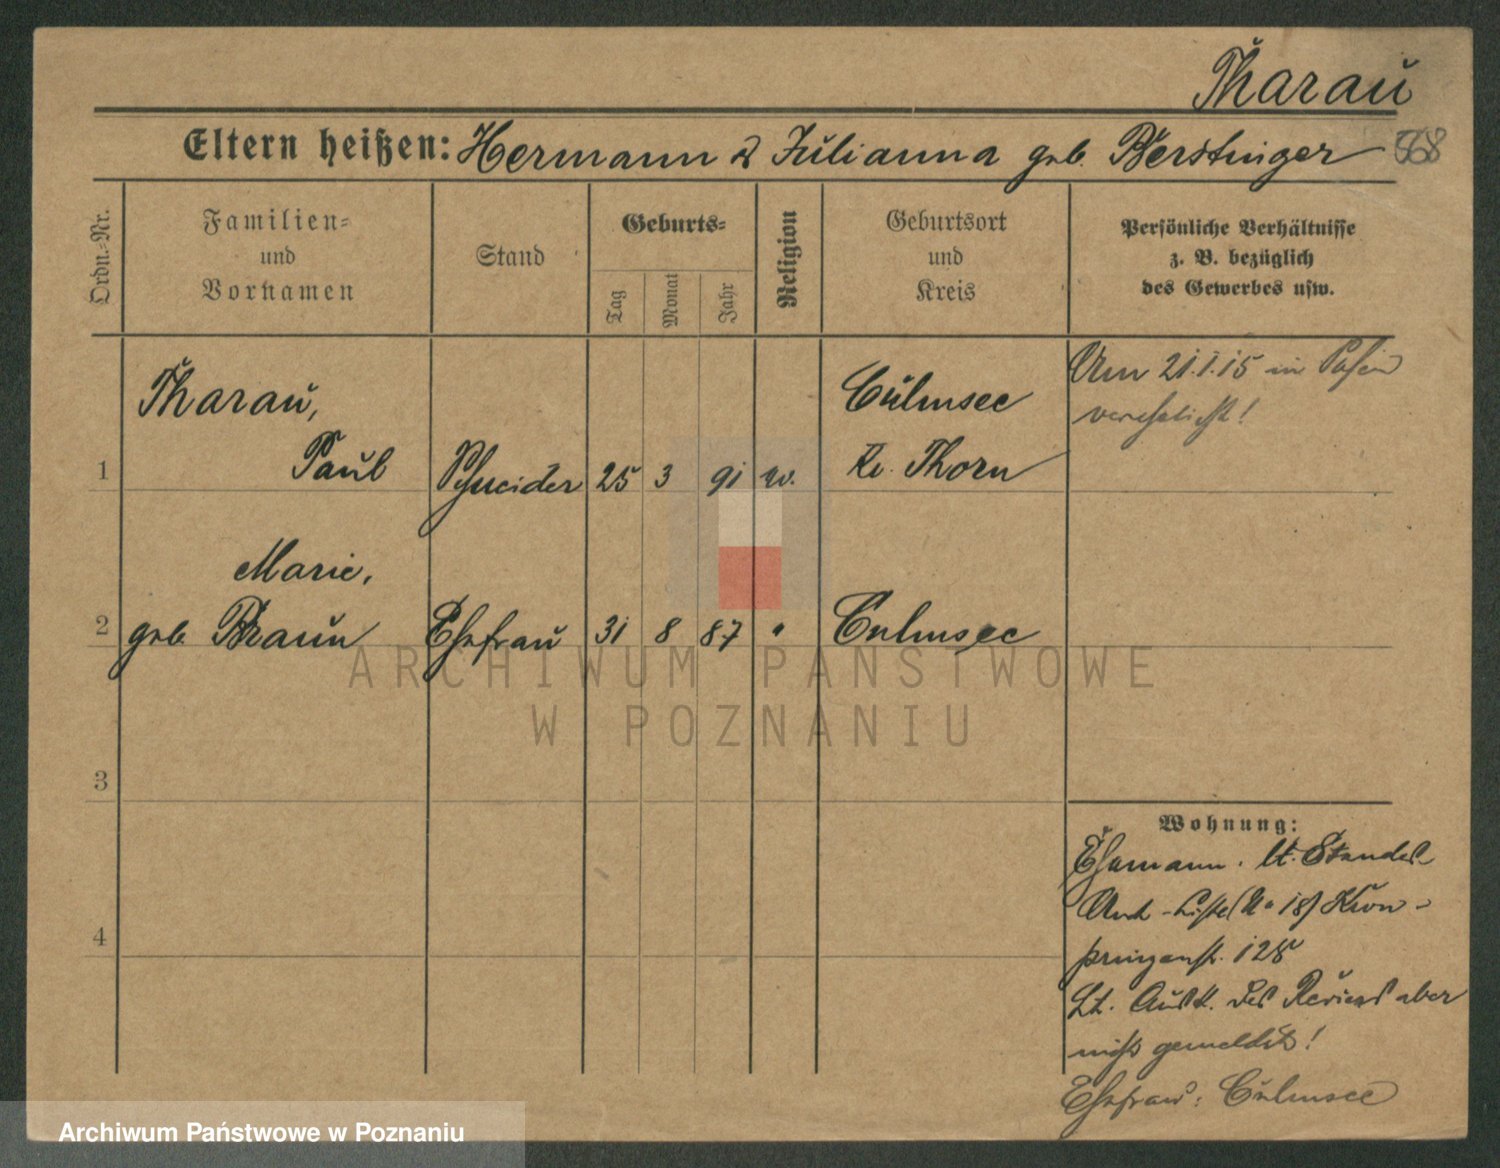 Tharau
Eltern heißen: Hermann & Julianna geb. Berstinger
568
Ordn.-Nr.
Familien-
und
Vornamen
Stand
Geburts-
Tag
Monat
Jahr
Religion
Geburtsort
und
Kreis
Persönliche Verhältnisse
z. B. bezüglich
des Gewerbes usw.
1
Tharau,
Paul
Schneider
25
3
91
ev.
Culmsee
Kr. Thorn
Am 21.1.15 in Posen
verehelicht!
2
Marie,
geb. Braun
Ehefrau
31
8
87
"
Culmsee
3
4
Wohnung:
Ehemann. lt. Standes-
Amt-Liste (No 18) Kron-
prinzenstr. 128
Lt. Ausk. des Reviers aber
nicht gemeldet!
Ehefrau: Culmsee
ARCHIWUM PAŃSTWOWE
W POZNANIU
Archiwum Państwowe w Poznaniu